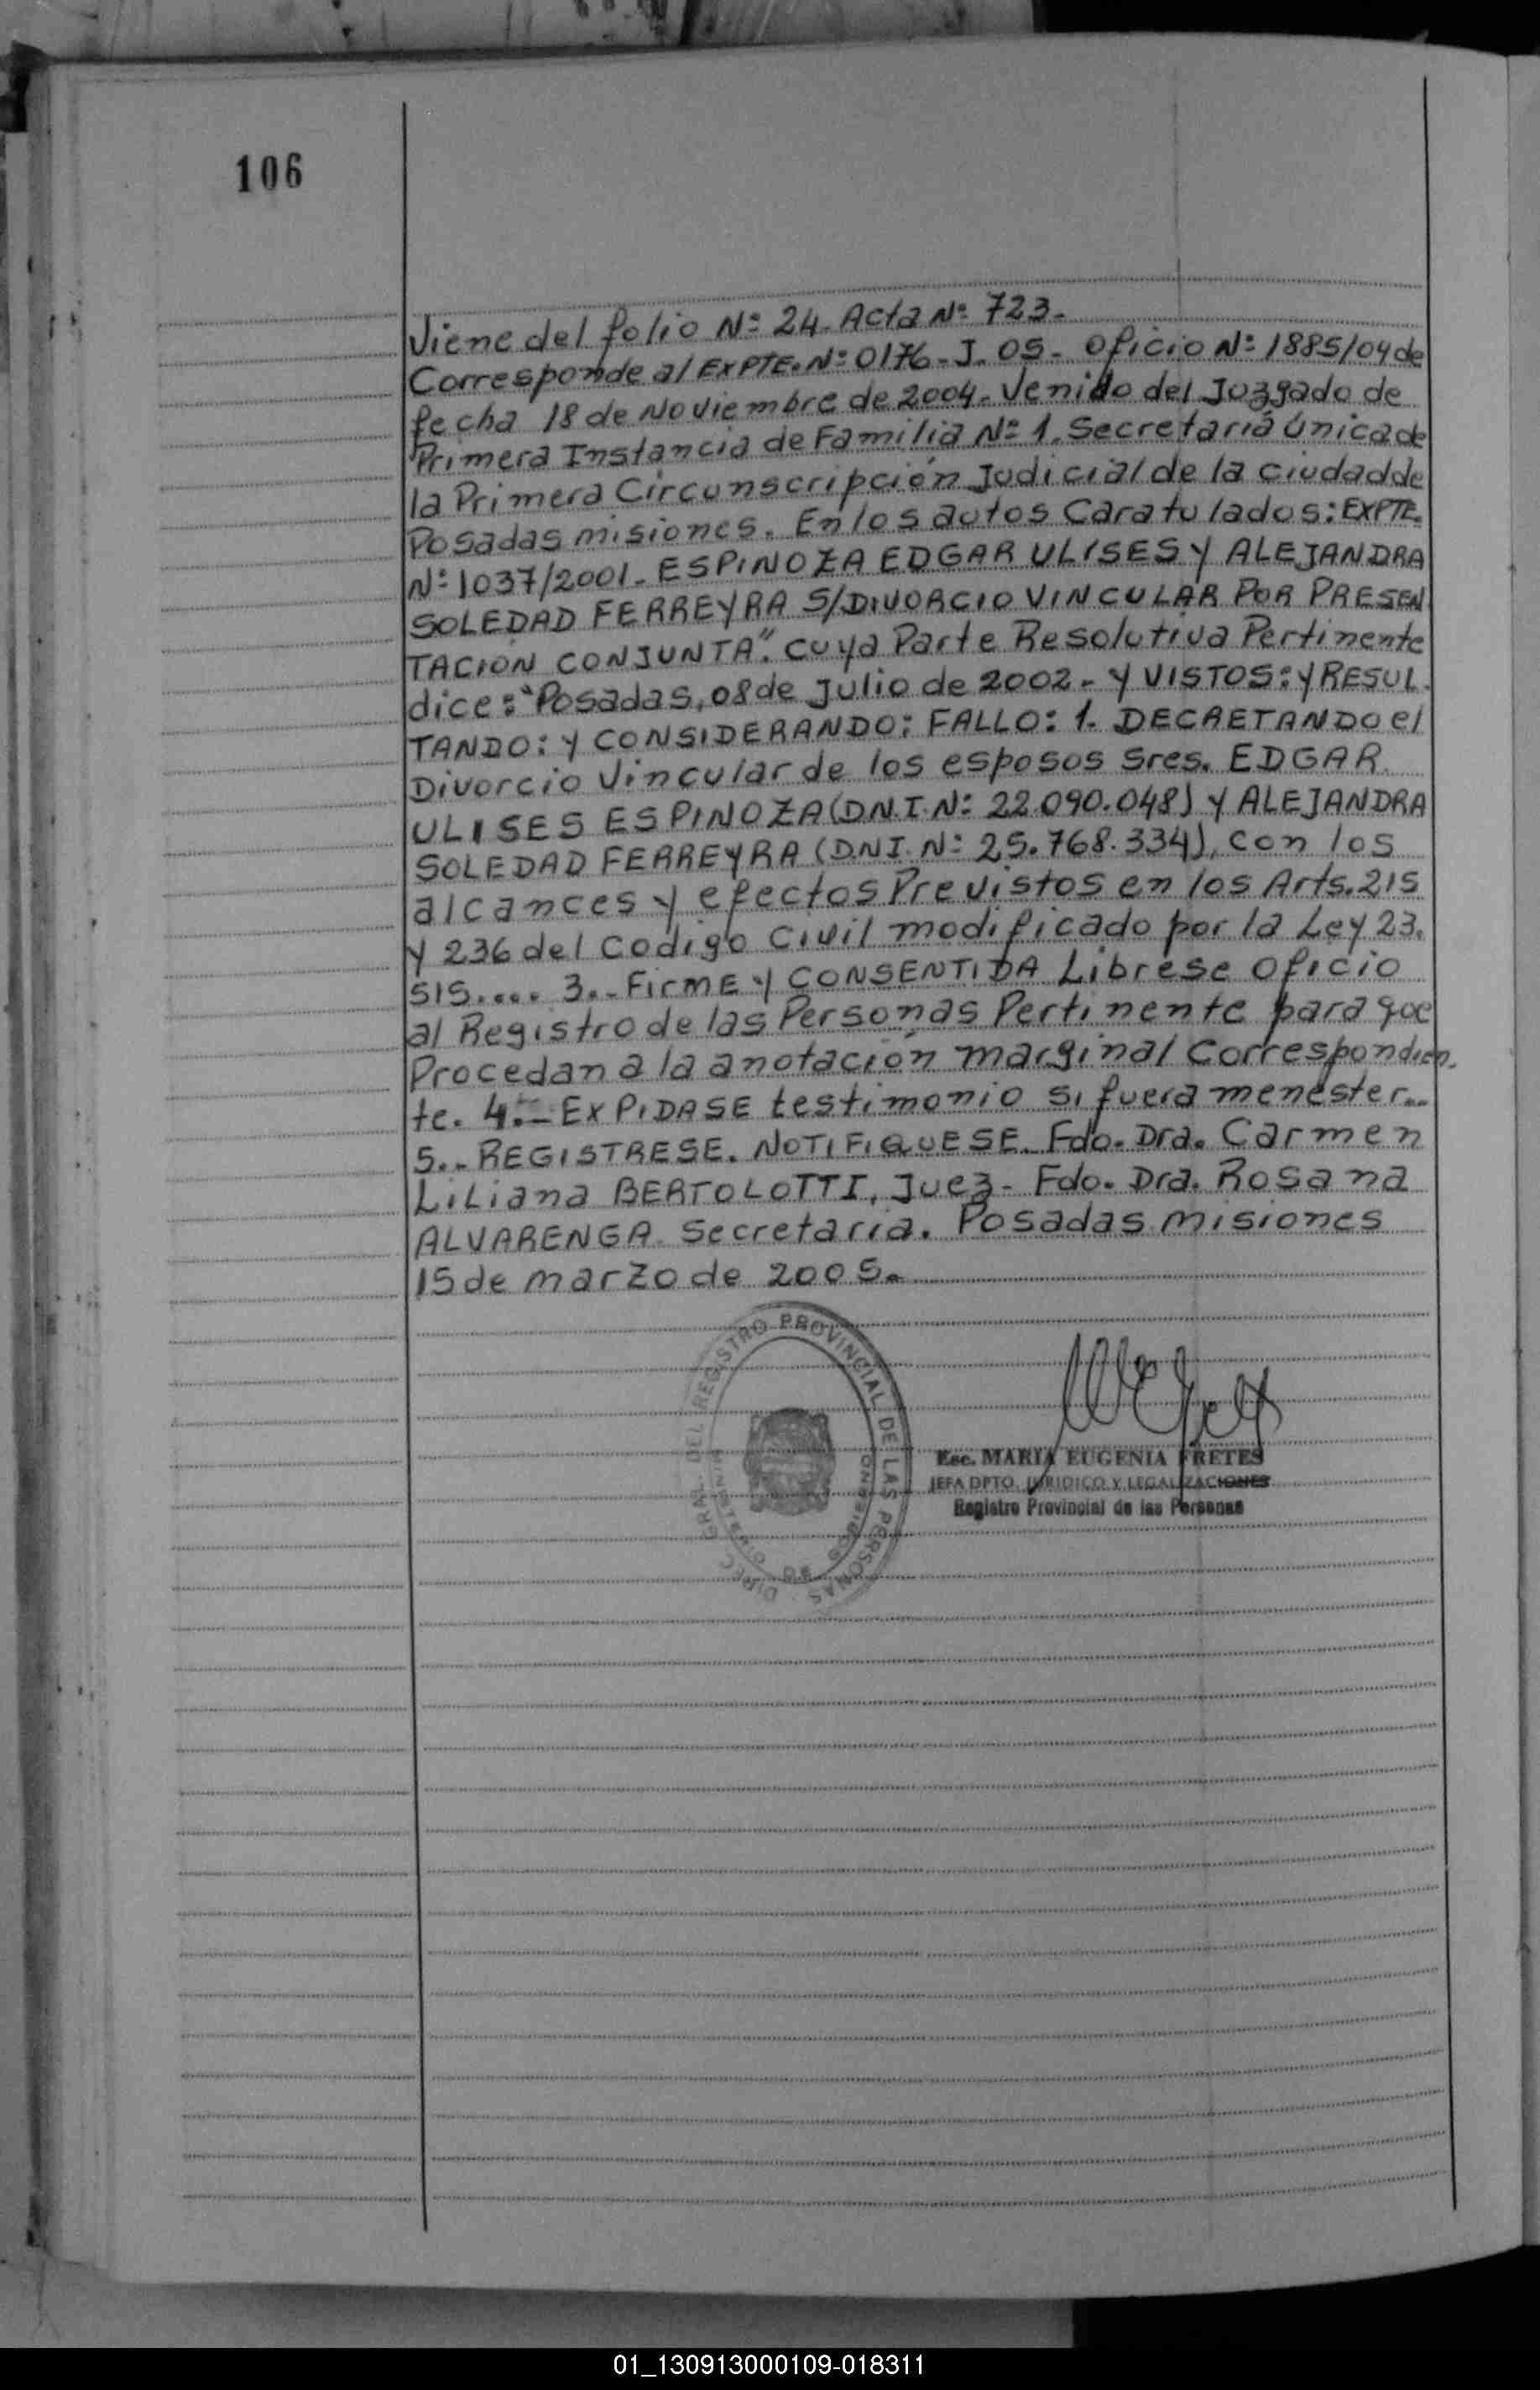 106
Viene del folio Nº 24. Acta Nº 723.
Corresponde al EXPTE. Nº 0176-J. 05- Oficio Nº 1885/04 de
fecha 18 de Noviembre de 2004. Venido del Juzgado de
Primera Instancia de Familia Nº 1. Secretaría Única de
la Primera Circunscripción Judicial de la ciudad de
Posadas misiones. En los autos Caratulados: EXPTE.
Nº 1037/2001- ESPINOZA EDGAR ULISES Y ALEJANDRA
SOLEDAD FERREYRA S/DIVORCIO VINCULAR POR PRESEN
TACION CONJUNTA". Cuya Parte Resolutiva Pertinente
dice: "Posadas, 08 de Julio de 2002- Y VISTOS: Y RESUL
TANDO: Y CONSIDERANDO: FALLO: 1. DECRETANDO el
Divorcio Vincular de los esposos Sres. EDGAR
ULISES ESPINOZA (D.N.I. Nº 22.090.048) Y ALEJANDRA
SOLEDAD FERREYRA (D.N.I. Nº 25.768.334), con los
alcances y efectos Previstos en los Arts. 215
y 236 del Codigo Civil modificado por la Ley 23.
515.... 3.- FIRME Y CONSENTIDA Librese Oficio
al Registro de las Personas Pertinente para que
Procedan a la anotación marginal Correspondien.
te. 4.- EXPIDASE testimonio si fuera menester...
5.- REGISTRESE. NOTIFIQUESE. Fdo. Dra. Carmen
Liliana BERTOLOTTI, Juez- Fdo. Dra. Rosana
ALVARENGA. Secretaria. Posadas misiones
15 de marzo de 2005.
DIREC. GRAL. DEL REGISTRO PROVINCIAL DE LAS PERSONAS
Esc. MARIA EUGENIA FRETES
JEFA DPTO. JURIDICO Y LEGALIZACIONES
Registro Provincial de las Personas
01_130913000109-018311